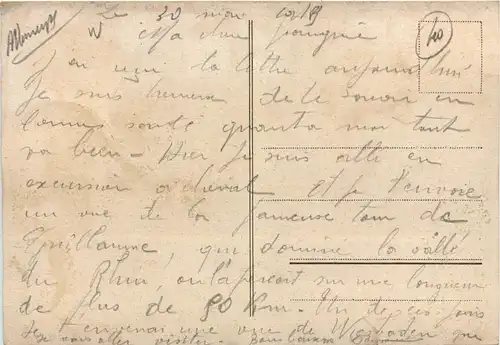 Allemagne
Le 30 mai 1919
40
Ma chère
J'ai reçu ta lettre aujourd'hui
Je suis heureux de te savoir en
bonne santé quant a moi tout
va bien - Hier je suis allé en
excursion a cheval Et je t'envoie
un vue de la fameuse tour de
Guillaume, qui domine la vallé
du Rhin, on l'aperçoit sur une longueur
de plus de 80 Km. Un de ces jours
Je t'enverai une vue de Wiesbaden que
visiter